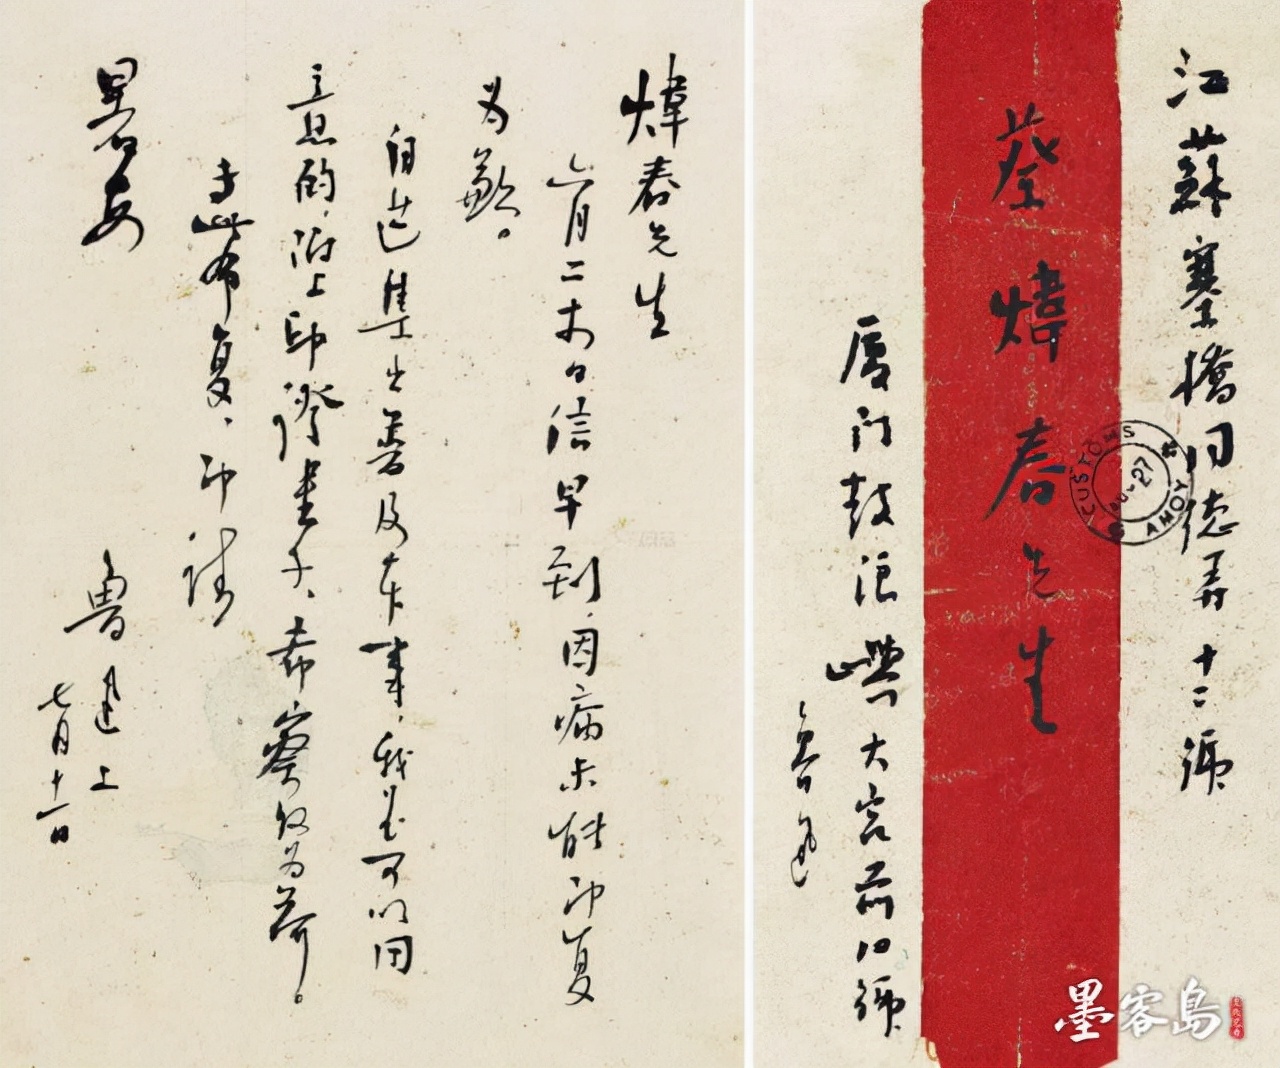 江蘇塞橋同德弄十二號
蔡煒春先生
厦门鼓浪嶼大宮前四號
鲁迅
CUSTOMS
27
AMOY
煒春先生
六月二日信早到,因病未能即复
为歉。
自选集出普及本事,我是可以同
意的,附上印證壹千,希察收为荷。
专此布复,即請
暑安
鲁迅上
七月十一日
墨客島